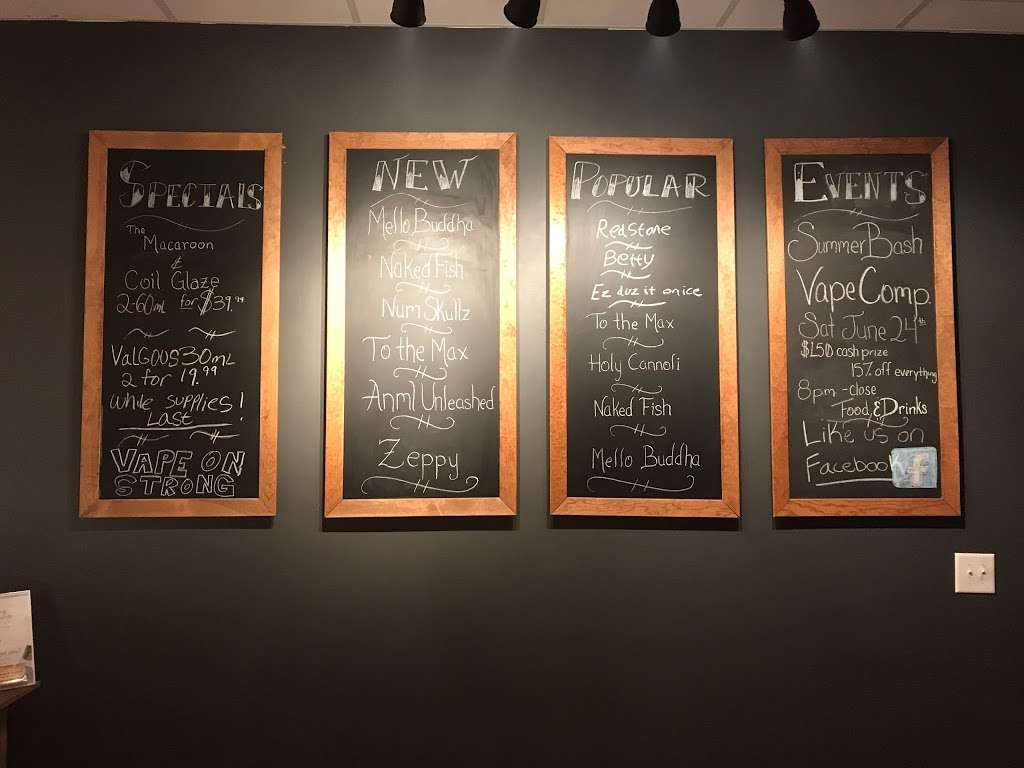 SPECIALS
The
Macaroon
&
Coil Glaze
2-60ml for $39.99
ValGOUS 30mL
2 for 19.99
while supplies!
Last
VAPE ON
STRONG
NEW
Mello Buddha
Naked Fish
Num Skullz
To the Max
Anml Unleashed
Zeppy
POPULAR
Redstone
Betty
Ez duz it on ice
To the Max
Holy Cannoli
Naked Fish
Mello Buddha
EVENTS
Summer Bash
Vape Comp.
Sat June 24th
$150 cash prize
15% off everything
8pm - close
Food & Drinks
Like us on
Facebook f